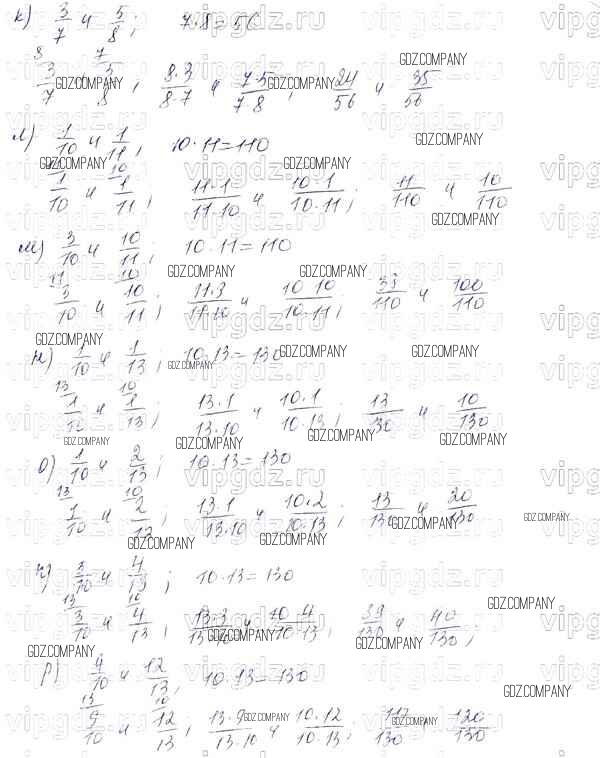 к) 3/7 и 5/8; 7·8=56
8 3/7 7 5/8; 8·3/8·7 и 7·5/7·8; 24/56 и 35/56
л) 1/10 и 1/11; 10·11=110
1/10 и 10 1/11; 11·1/11·10 и 10·1/10·11; 11/110 и 10/110
м) 3/10 и 10/11; 10·11=110
11 3/10 и 10 10/11; 11·3/11·10 и 10·10/10·11; 33/110 и 100/110
н) 1/10 и 1/13; 10·13=130
13 1/10 и 10 1/13; 13·1/13·10 и 10·1/10·13; 13/130 и 10/130
о) 1/10 и 2/13; 10·13=130
13 1/10 и 10 2/13; 13·1/13·10 и 10·2/10·13; 13/130 и 20/130
п) 3/10 и 4/13; 10·13=130
13 3/10 и 10 4/13; 13·3/13·10 10·4/10·13; 39/130 и 40/130;
р) 9/10 и 12/13; 10·13=130
13 9/10 и 10 12/13; 13·9/13·10 и 10·12/10·13; 117/130 120/130